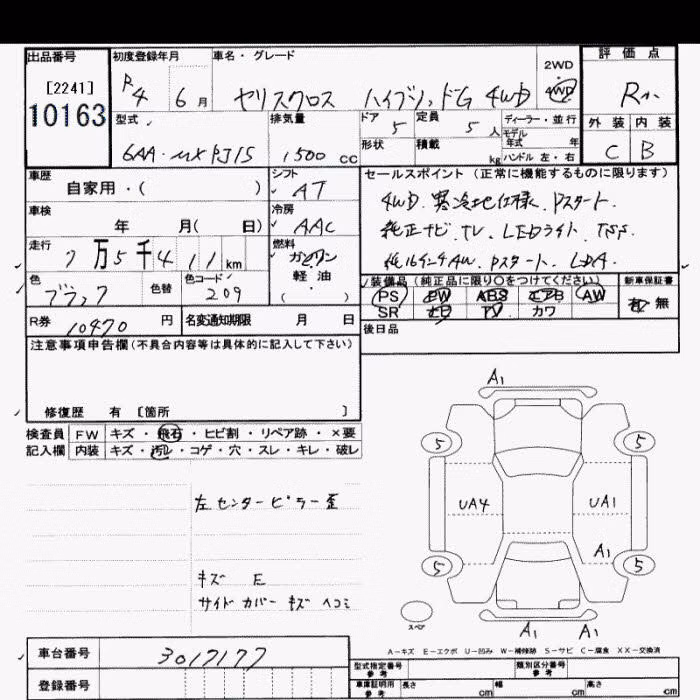 出品番号
[2241]
10163
初度登録年月
R4 6月
車名・グレード
ヤリスクロス ハイブリッドG 4WD
2WD
4WD
評価点
R
外装 内装
C B
型式
6AA-MXPJ15
排気量
1500 cc
ドア 5
定員 5人
ディーラー・並行
モデル
年式 年
形状
積載 kg
ハンドル 左・右
車歴
自家用・( )
シフト
AT
車検
年 月( 日)
冷房
AAC
走行
7万5千411km
燃料
ガソリン
軽・油
( ・ )
色
ブラック
色替
色コード
209
R券
10470 円
名変通知期限 月 日
セールスポイント(正常に機能するものに限ります)
4WD.寒冷地仕様.Pスタート.
純正ナビ.TV.LEDライト.TSS.
Pスタート.LDA.
装備品(純正品に限り○をつけてください)
PS PW ABS エアB AW
SR TV カワ
新車保証書
有 無
後日品
注意事項申告欄(不具合内容等は具体的に記入して下さい)
修復歴 有 [箇所 ]
検査員 FW キズ・飛石・ヒビ割・リペア跡・×要
記入欄 内装 キズ・汚レ・コゲ・穴・スレ・キレ・破レ
左センターピラー歪
キズ E
サイドカバーキズ ヘコミ
A1
5 5
UA4 UA1
A1
5 5
スペア
A1 A1
A-キズ E-エクボ U-凹み W-補修跡 S-サビ C-腐食 XX-交換済
車台番号 3017177
登録番号
型式指定番号 参考
類別区分番号 参考
車庫証明用 参考
長さ cm
幅 cm
高さ cm